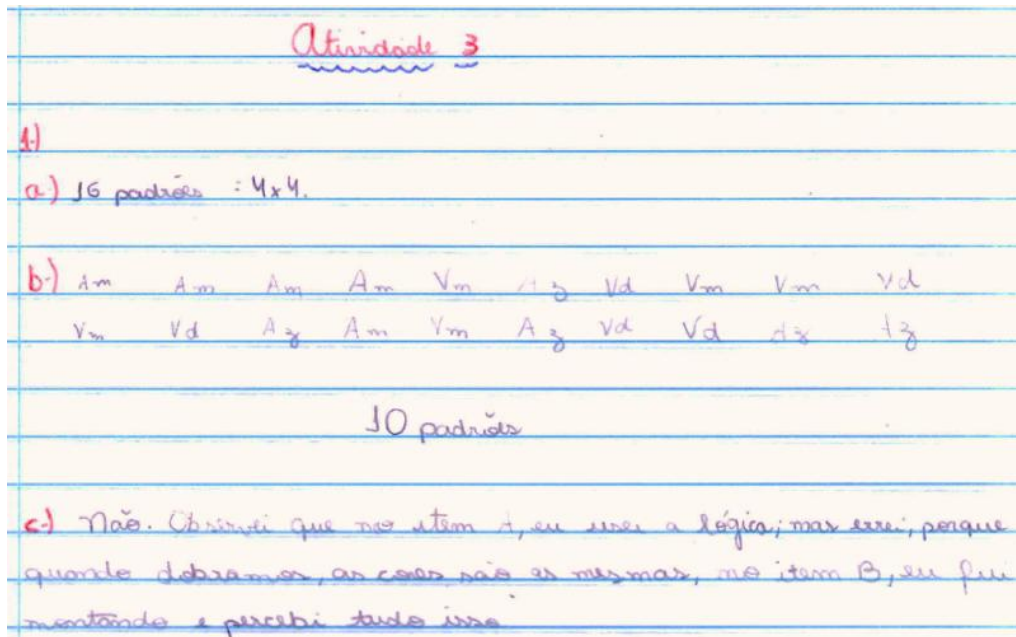 Atividade 3
1-)
a-) 16 padrões = 4x4.
b-) Am Am Am Am Vm Az Vd Vm Vm Vd
Vm Vd Az Am Vm Az Vd Vd Az Az
10 padrões
c-) Não. Observei que no item A, eu usei a lógica; mas errei; porque
quando dobramos, as cores são as mesmas, no item B, eu fui
montando e percebi tudo isso